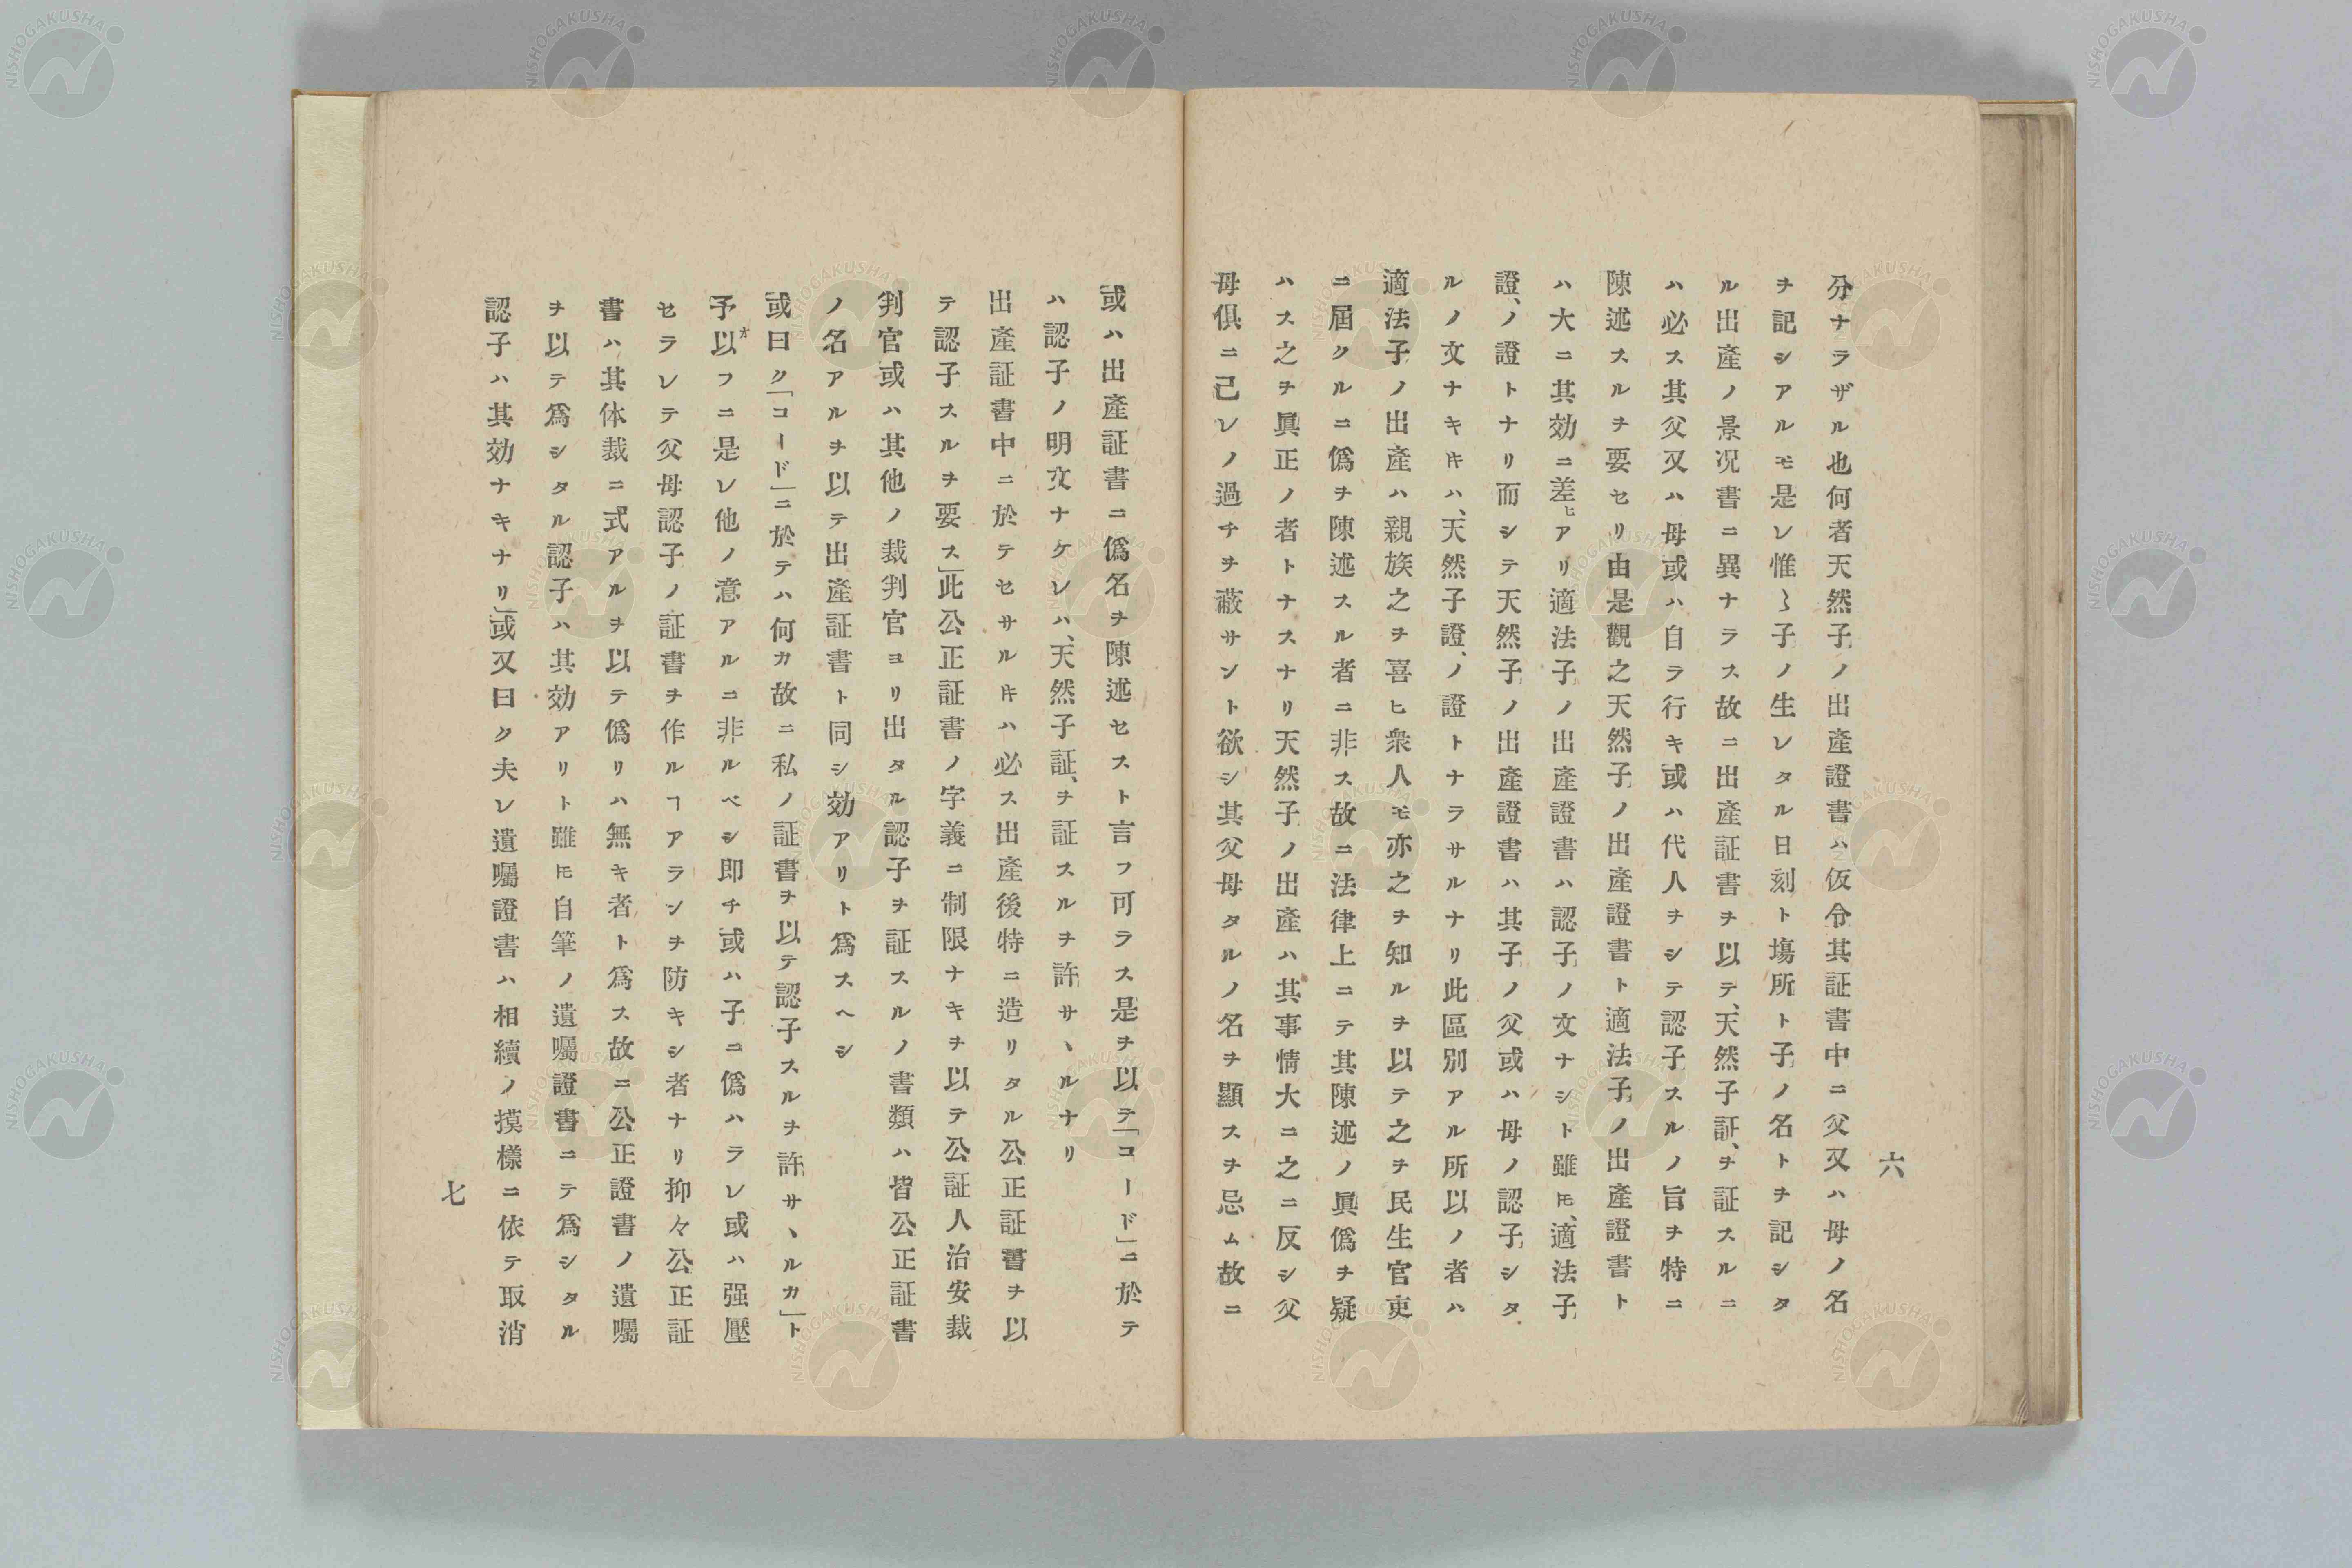 六
分ナラザル也何者天然子ノ出產證書ハ仮令其証書中ニ父又ハ母ノ名
ヲ記シアルモ是レ惟〻子ノ生レタル日刻ト塲所ト子ノ名トヲ記シタ
ル出產ノ景況書ニ異ナラス故ニ出產証書ヲ以テ、天然子証、ヲ証スルニ
ハ必ス其父又ハ母或ハ自ラ行キ或ハ代人ヲシテ認子スルノ旨ヲ特ニ
陳述スルヲ要セリ由是觀之天然子ノ出產證書ト適法子ノ出產證書ト
ハ大ニ其効ニ差ヒアリ適法子ノ出產證書ハ認子ノ文ナシト雖𪜈、適法子
證、ノ證トナリ而シテ天然子ノ出產證書ハ其子ノ父或ハ母ノ認子シタ
ルノ文ナキ𪜈ハ、天然子證、ノ證トナラサルナリ此區別アル所以ノ者ハ
適法子ノ出產ハ親族之ヲ喜ヒ衆人モ亦之ヲ知ルヲ以テ之ヲ民生官吏
ニ屆クルニ僞ヲ陳述スル者ニ非ス故ニ法律上ニテ其陳述ノ眞僞ヲ疑
ハス之ヲ眞正ノ者トナスナリ天然子ノ出產ハ其事情大ニ之ニ反シ父
母俱ニ己レノ過チヲ蔽サント欲シ其父母タルノ名ヲ顯スヲ忌ム故ニ
或ハ出產証書ニ僞名ヲ陳述セスト言フ可ラス是ヲ以テ「コード」ニ於テ
ハ認子ノ明文ナケレハ、天然子証、ヲ証スルヲ許サヽルナリ
出產証書中ニ於テセサル𪜈ハ必ス出產後特ニ造リタル公正証書ヲ以
テ認子スルヲ要ス」此公正証書ノ字義ニ制限ナキヲ以テ公証人治安裁
判官或ハ其他ノ裁判官ヨリ出タル認子ヲ証スルノ書類ハ皆公正証書
ノ名アルヲ以テ出產証書ト同シ効アリト爲スヘシ
或曰ク「コード」ニ於テハ何カ故ニ私ノ証書ヲ以テ認子スルヲ許サヽルカ」ト
予以オフニ是レ他ノ意アルニ非ルベシ即チ或ハ子ニ僞ハラレ或ハ强壓
セラレテ父母認子ノ証書ヲ作ルヿアランヲ防キシ者ナリ抑々公正証
書ハ其体裁ニ式アルヲ以テ僞リハ無キ者ト爲ス故ニ公正證書ノ遺囑
ヲ以テ爲シタル認子ハ其効アリト雖𪜈自筆ノ遺囑證書ニテ爲シタル
認子ハ其効ナキナリ」或又曰ク夫レ遺囑證書ハ相續ノ摸樣ニ依テ取消
七
NISHOGAKUSHA